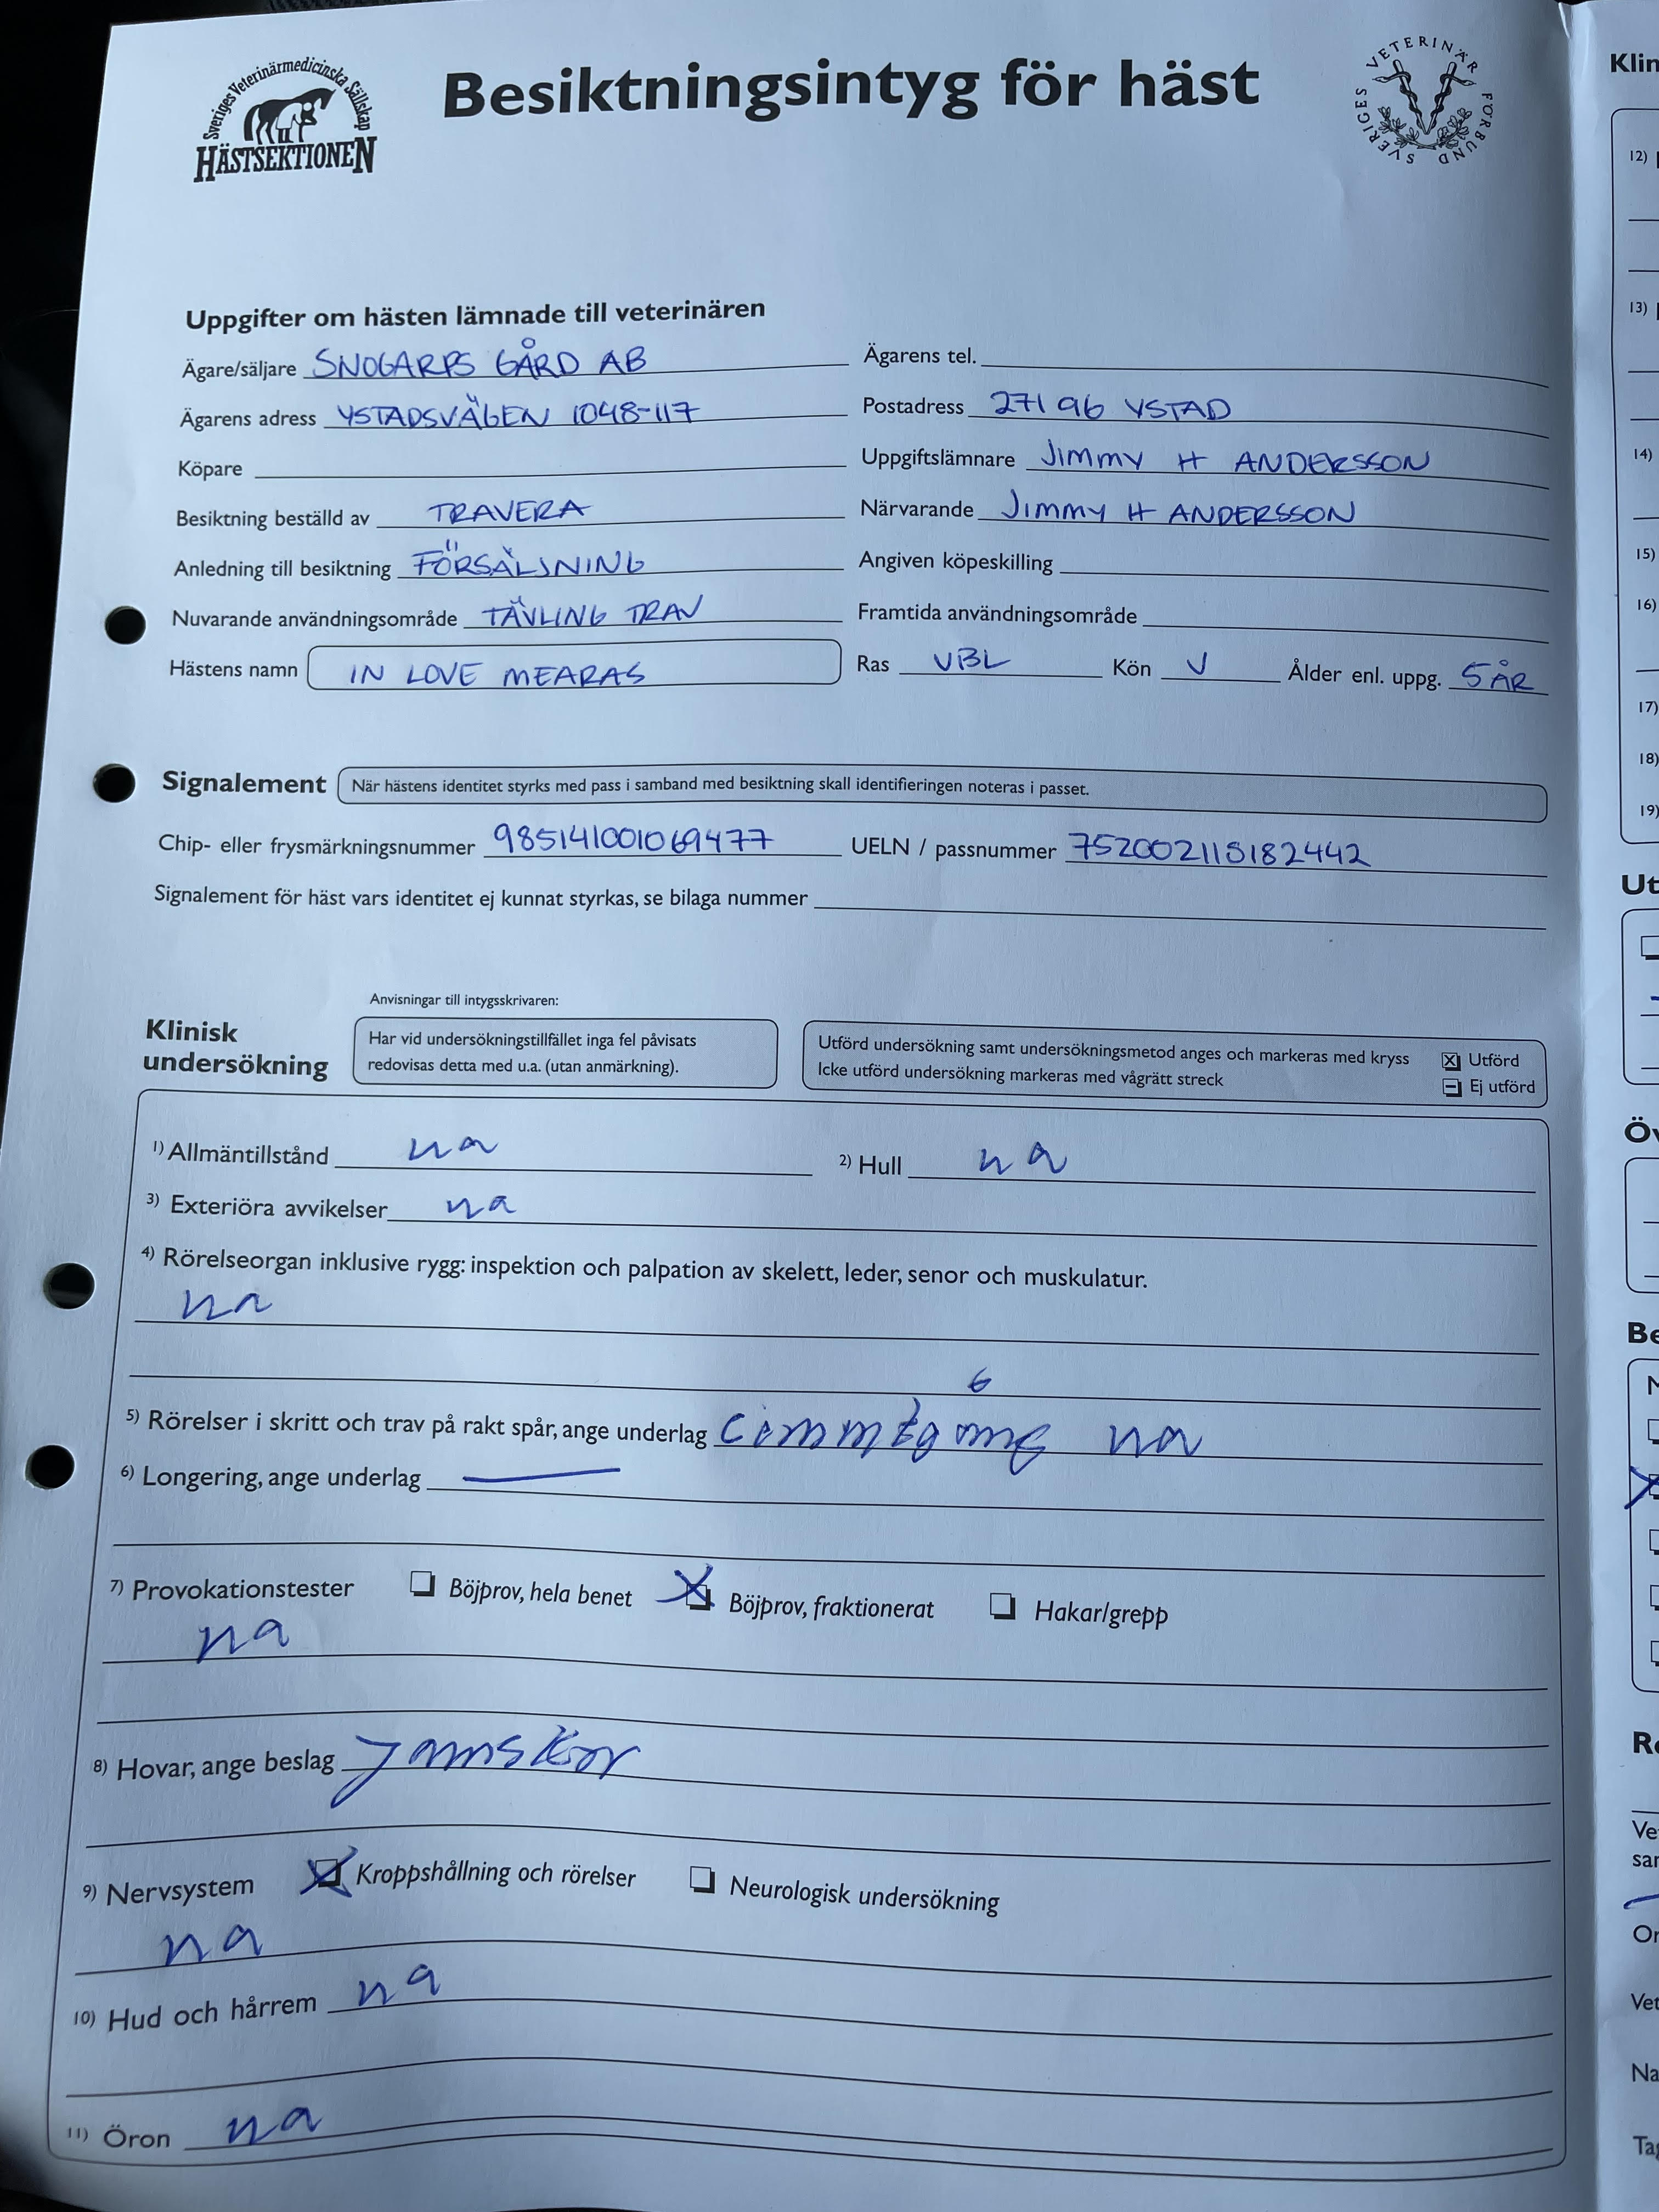 Sveriges Veterinärmedicinska Sällskap
HÄSTSEKTIONEN
Besiktningsintyg för häst
SVERIGES VETERINÄR FÖRBUND
Uppgifter om hästen lämnade till veterinären
Ägare/säljare SNOGARPS GÅRD AB
Ägarens tel.
Ägarens adress YSTADSVÄGEN 1048-117
Postadress 271 96 YSTAD
Köpare
Uppgiftslämnare JIMMY H ANDERSSON
Besiktning beställd av TRAVERA
Närvarande JIMMY H ANDERSSON
Anledning till besiktning FÖRSÄLJNING
Angiven köpeskilling
Nuvarande användningsområde TÄVLING TRAV
Framtida användningsområde
Hästens namn IN LOVE MEARAS
Ras VBL Kön V Ålder enl. uppg. 5 ÅR
Signalement När hästens identitet styrks med pass i samband med besiktning skall identifieringen noteras i passet.
Chip- eller frysmärkningsnummer 985141001069477 UELN / passnummer 752002118182442
Signalement för häst vars identitet ej kunnat styrkas, se bilaga nummer
Anvisningar till intygsskrivaren:
Klinisk undersökning
Har vid undersökningstillfället inga fel påvisats
redovisas detta med u.a. (utan anmärkning).
Utförd undersökning samt undersökningsmetod anges och markeras med kryss
Icke utförd undersökning markeras med vågrätt streck
Utförd
Ej utförd
1) Allmäntillstånd ua
2) Hull ua
3) Exteriöra avvikelser ua
4) Rörelseorgan inklusive rygg: inspektion och palpation av skelett, leder, senor och muskulatur.
ua
5) Rörelser i skritt och trav på rakt spår, ange underlag ua
6) Longering, ange underlag
7) Provokationstester Böjprov, hela benet Böjprov, fraktionerat Hakar/grepp
ua
8) Hovar, ange beslag
9) Nervsystem Kroppshållning och rörelser Neurologisk undersökning
ua
10) Hud och hårrem ua
11) Öron ua
Klin
12)
13)
14)
15)
16)
17)
18)
19)
Ut
Öv
Be
Ve